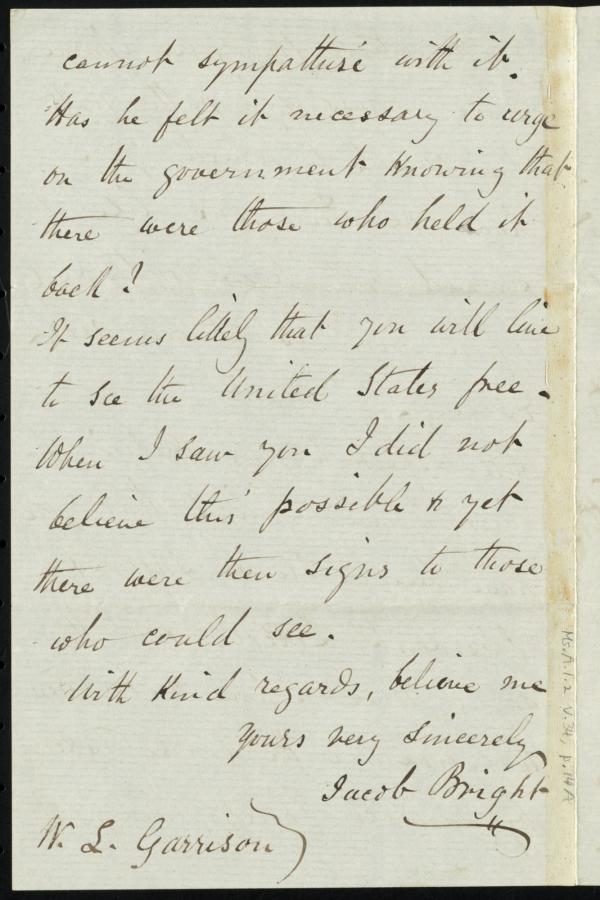 cannot sympathise with it.
Has he felt it necessary to urge
on the government knowing that
there were those who held it
back?
It seems likely that you will live
to see the United States free.
When I saw you I did not
believe this possible & yet
there were then signs to those
who could see.
With kind regards, believe me
yours very sincerely
Jacob Bright
W. L. Garrison
Ms.A.1.2 V.34, p.14A